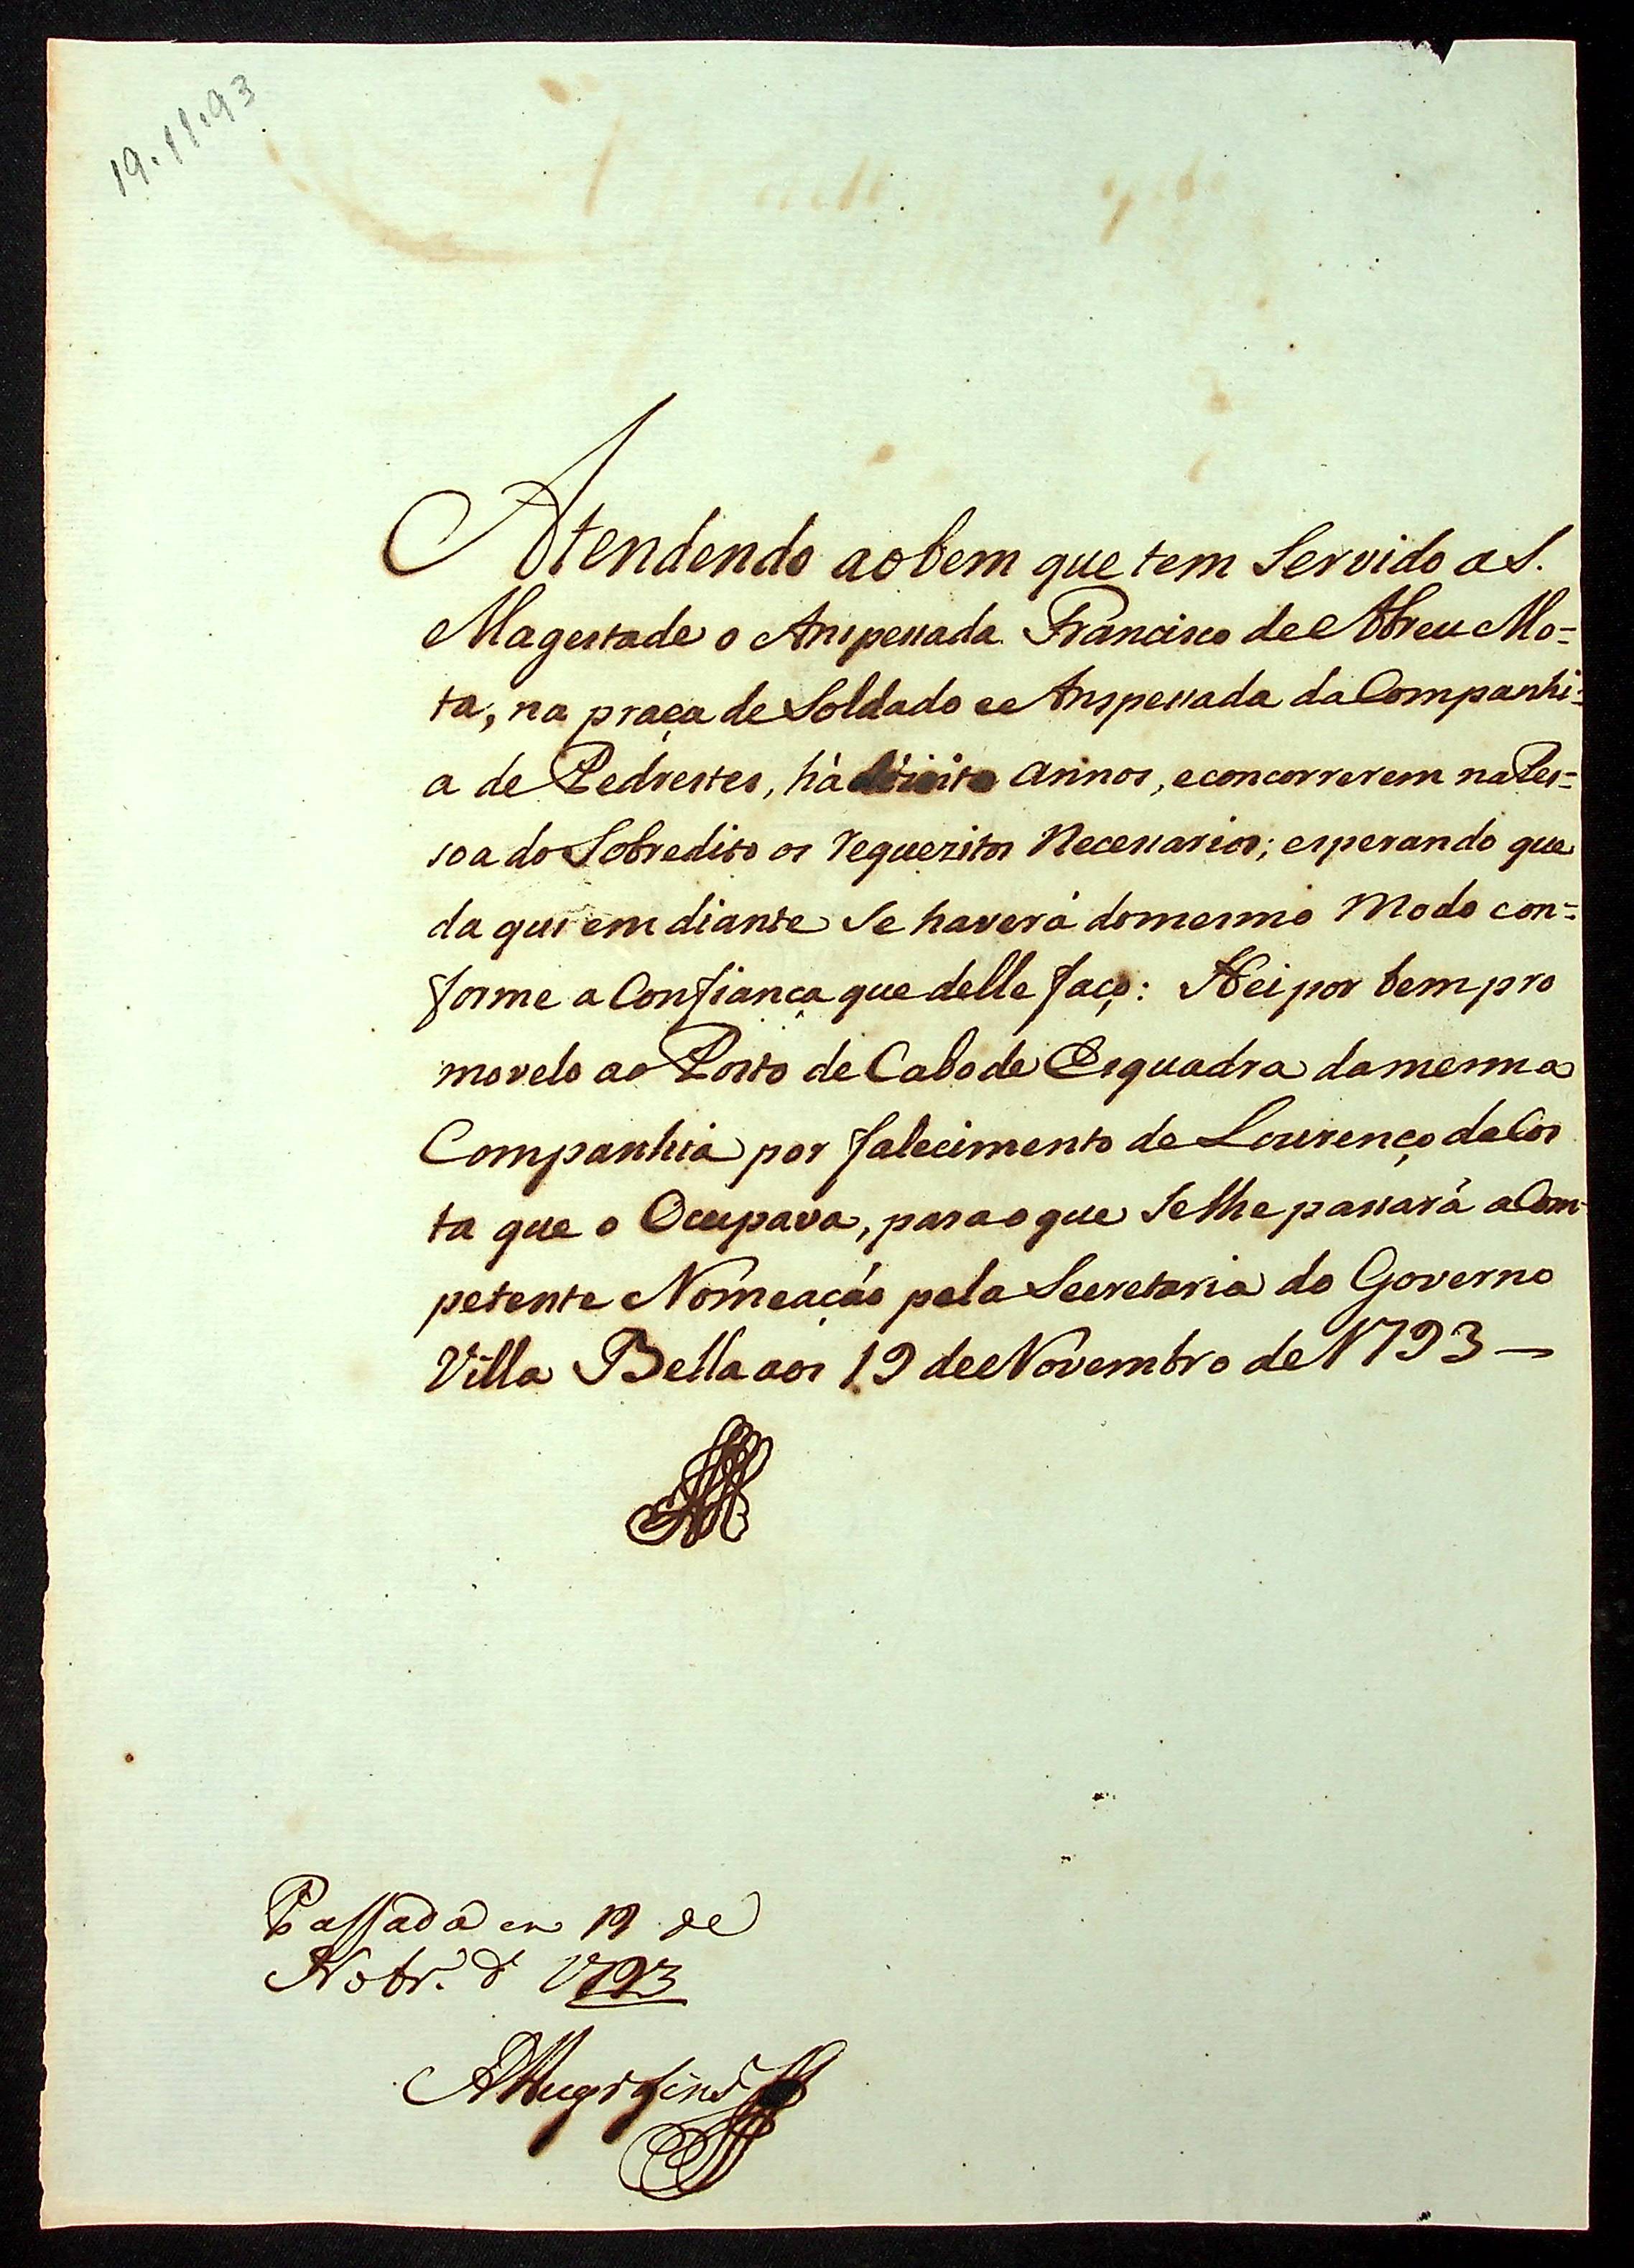 19.11.93
Atendendo ao bem que tem Servido a S.
Magestade o Anspessada Francisco de Abreu Mo=
ta, na praça de Soldado e Anspessada da Companhi=
a de Pedrestes, há annos, e concorrerem na Pes=
soa do Sobredito os requezitos Necessarios; esperando que
da qui em diante Se haverá do mesmo Modo con=
forme a Confiança que delle faço: Hei por bem pro
movelo ao Posto de Cabo de Esquadra da mesma
Companhia por falecimento de Lourenço da Cos
ta que o Ocupava, para o que Se lhe passará a Com=
petente Nomeação pela Secretaria do Governo
Villa Bella aos 19 de Novembro de 1793 —
Passada em 19 de
Nobr.º d 1793